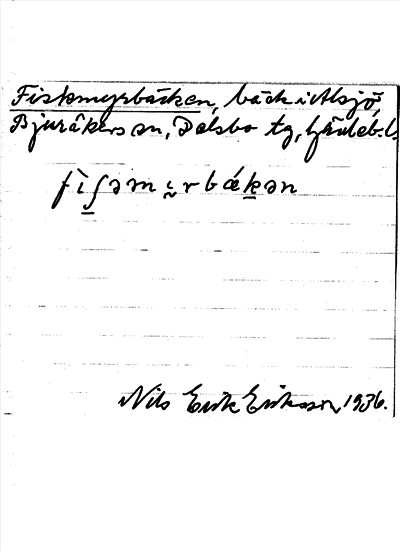 Fiskmyrbäcken, bäck i Alsjö,
Bjuråkers sn, Delsbo tg, Gävleb. l.
fìʃəm ᶖrbǽkən
Nils Erik Eriksson, 1936.